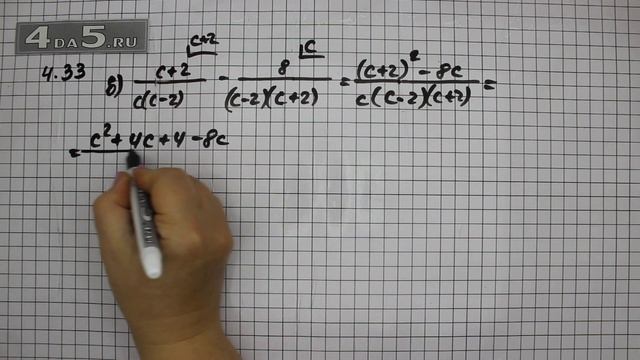 4DA5.RU
4.33 в) (c+2)/(c(c-2)) ^c+2 - 8/((c-2)(c+2)) ^c = ((c+2)² - 8c)/(c(c-2)(c+2)) =
= c² + 4c + 4 - 8c